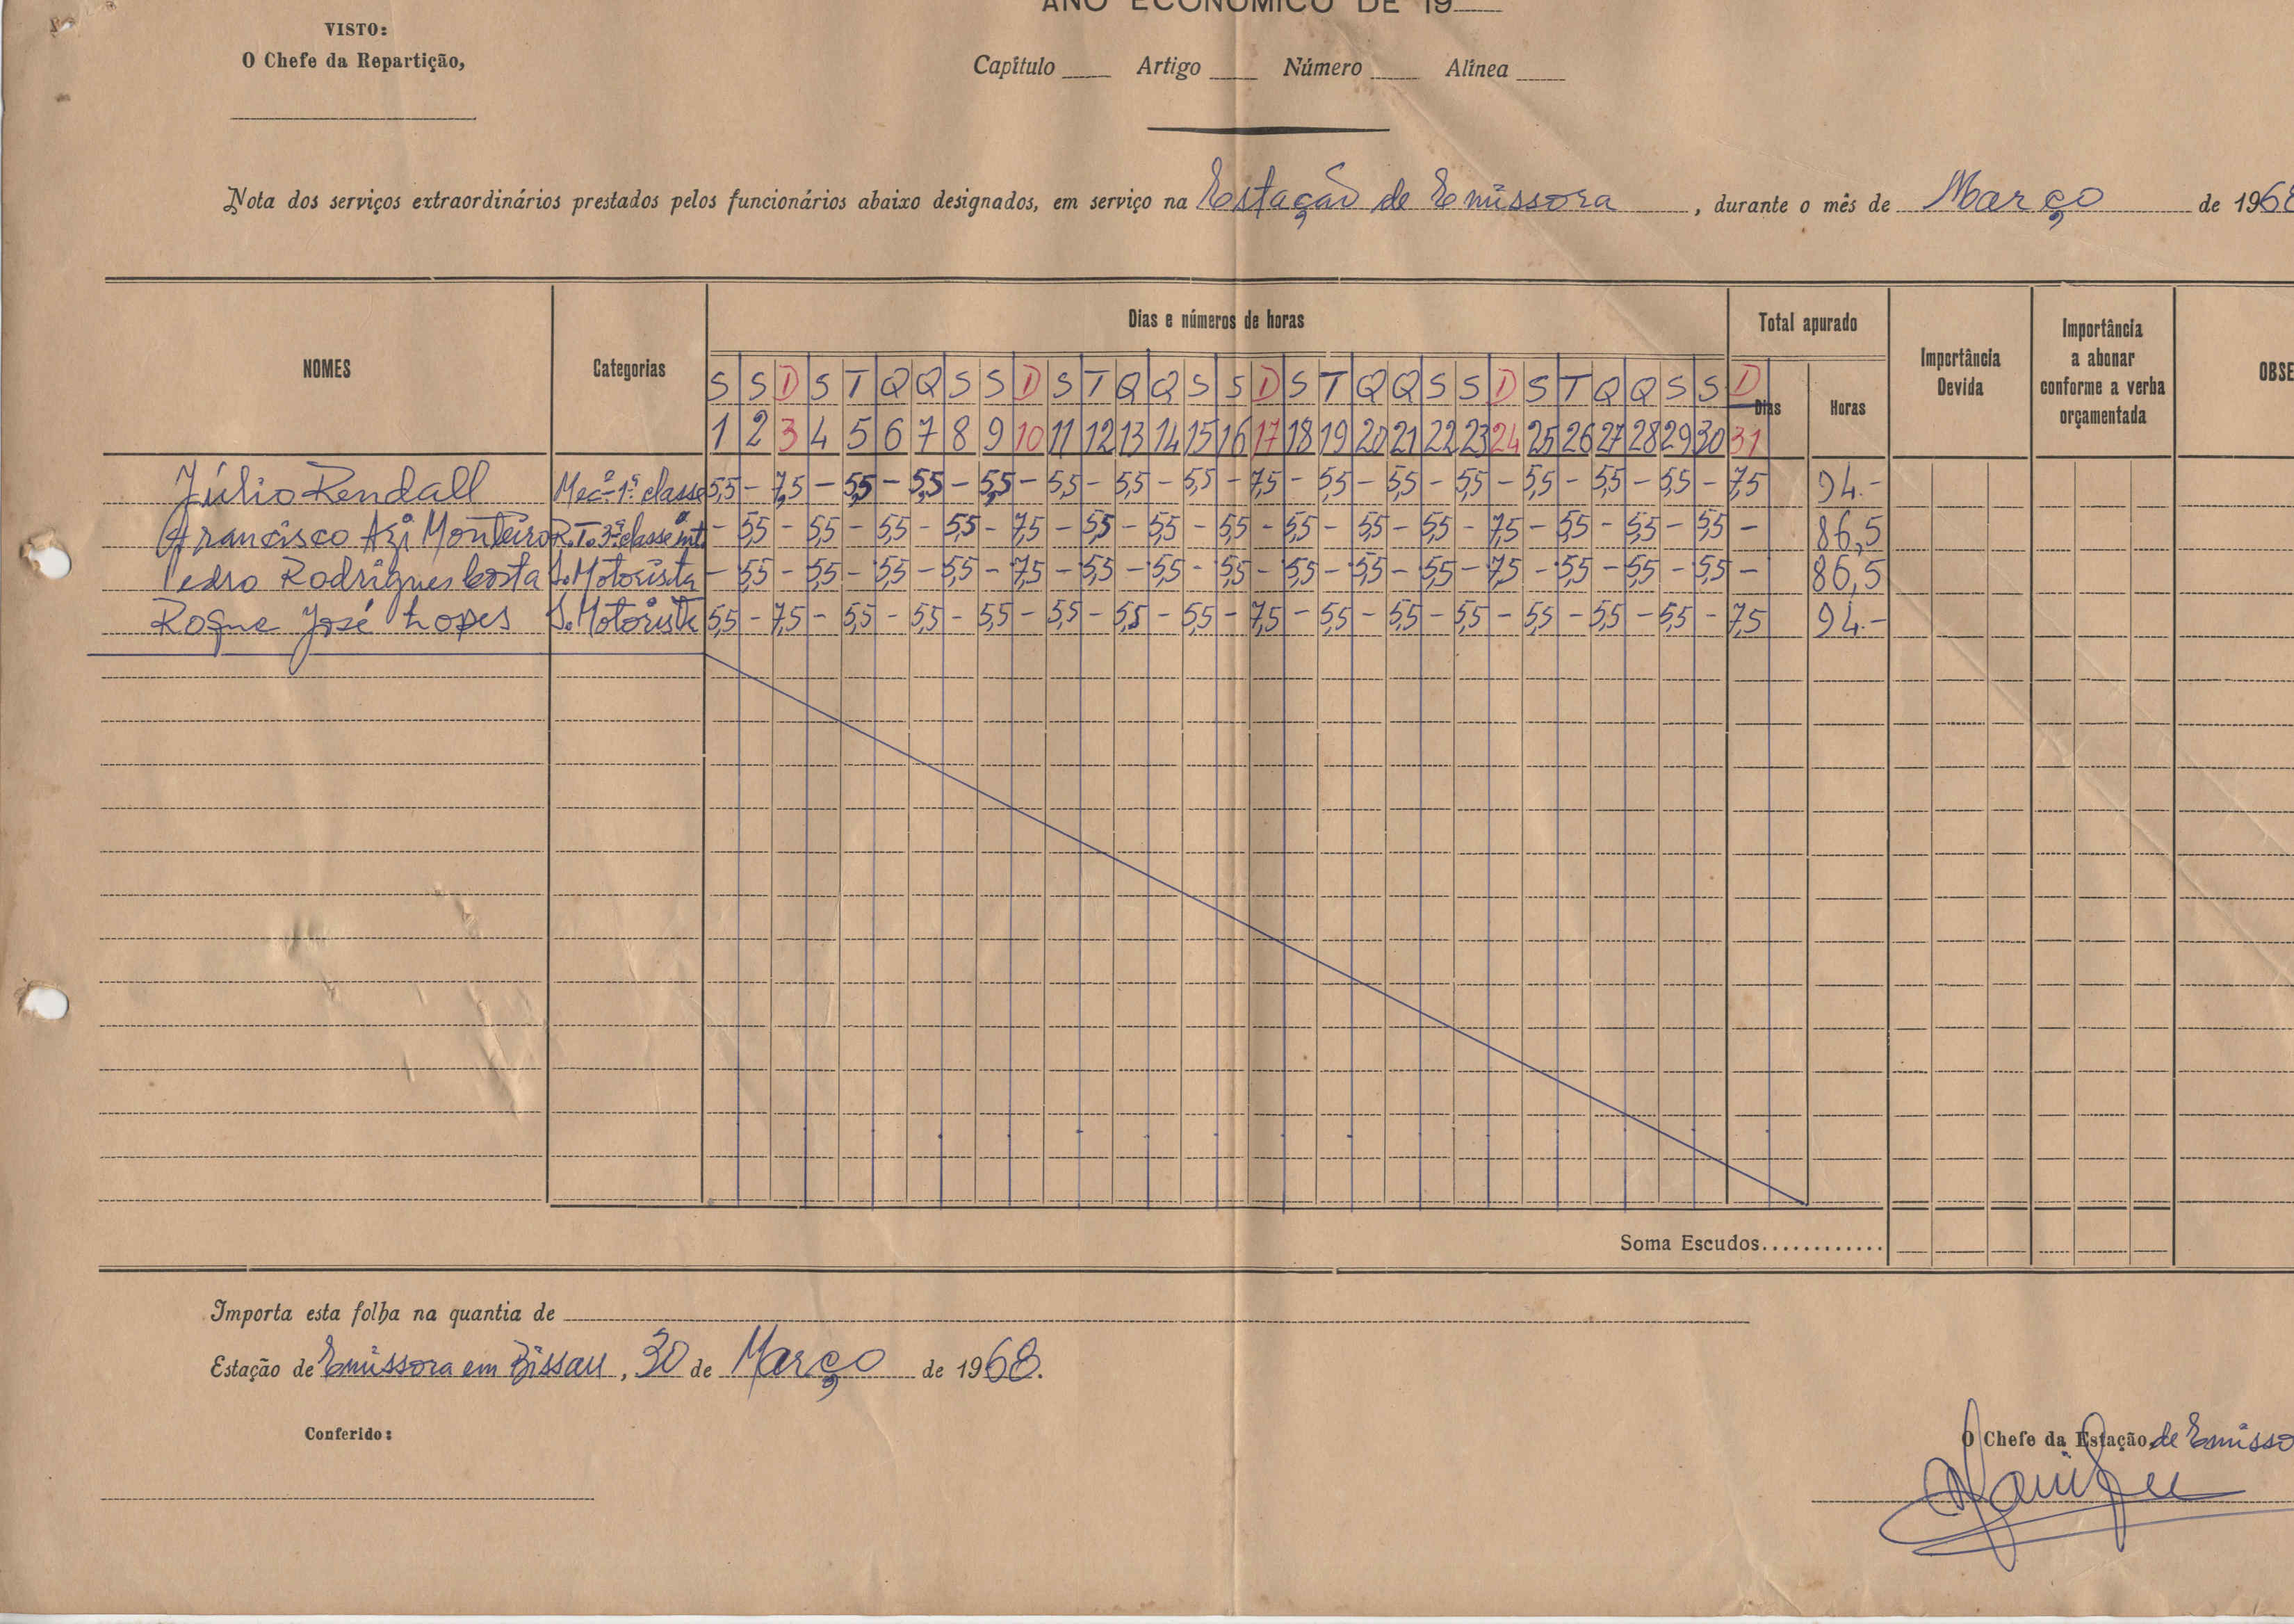 ANO ECONÓMICO DE 19
VISTO:
O Chefe da Repartição,
Capítulo Artigo Número Alínea
Nota dos serviços extraordinários prestados pelos funcionários abaixo designados, em serviço na Estação de Emissora, durante o mês de Março de 1968
NOMES Categorias Dias e números de horas Total apurado Importância Devida Importância a abonar conforme a verba orçamentada OBSE
S S D S T Q Q S S D S T Q Q S S D S T Q Q S S D S T Q Q S S D Dias Horas
1 2 3 4 5 6 7 8 9 10 11 12 13 14 15 16 17 18 19 20 21 22 23 24 25 26 27 28 29 30 31
Júlio Rendall Mecº 1ª classe 5,5 - 7,5 - 5,5 - 5,5 - 5,5 - 5,5 - 5,5 - 5,5 - 7,5 - 5,5 - 5,5 - 5,5 - 5,5 - 5,5 - 5,5 - 7,5 94.-
Francisco Azi Monteiro R.T. 3ª classe intº - 5,5 - 5,5 - 5,5 - 5,5 - 7,5 - 5,5 - 5,5 - 5,5 - 5,5 - 5,5 - 5,5 - 7,5 - 5,5 - 5,5 - 5,5 - 86,5
Pedro Rodrigues Costa S. Motorista - 5,5 - 5,5 - 5,5 - 5,5 - 7,5 - 5,5 - 5,5 - 5,5 - 5,5 - 5,5 - 5,5 - 7,5 - 5,5 - 5,5 - 5,5 - 86,5
Roque José Lopes S. Motorista 5,5 - 7,5 - 5,5 - 5,5 - 5,5 - 5,5 - 5,5 - 5,5 - 7,5 - 5,5 - 5,5 - 5,5 - 5,5 - 5,5 - 5,5 - 7,5 94.-
Soma Escudos............
Importa esta folha na quantia de
Estação de Emissora em Bissau, 30 de Março de 1968.
Conferido:
O Chefe da Estação de Emisso